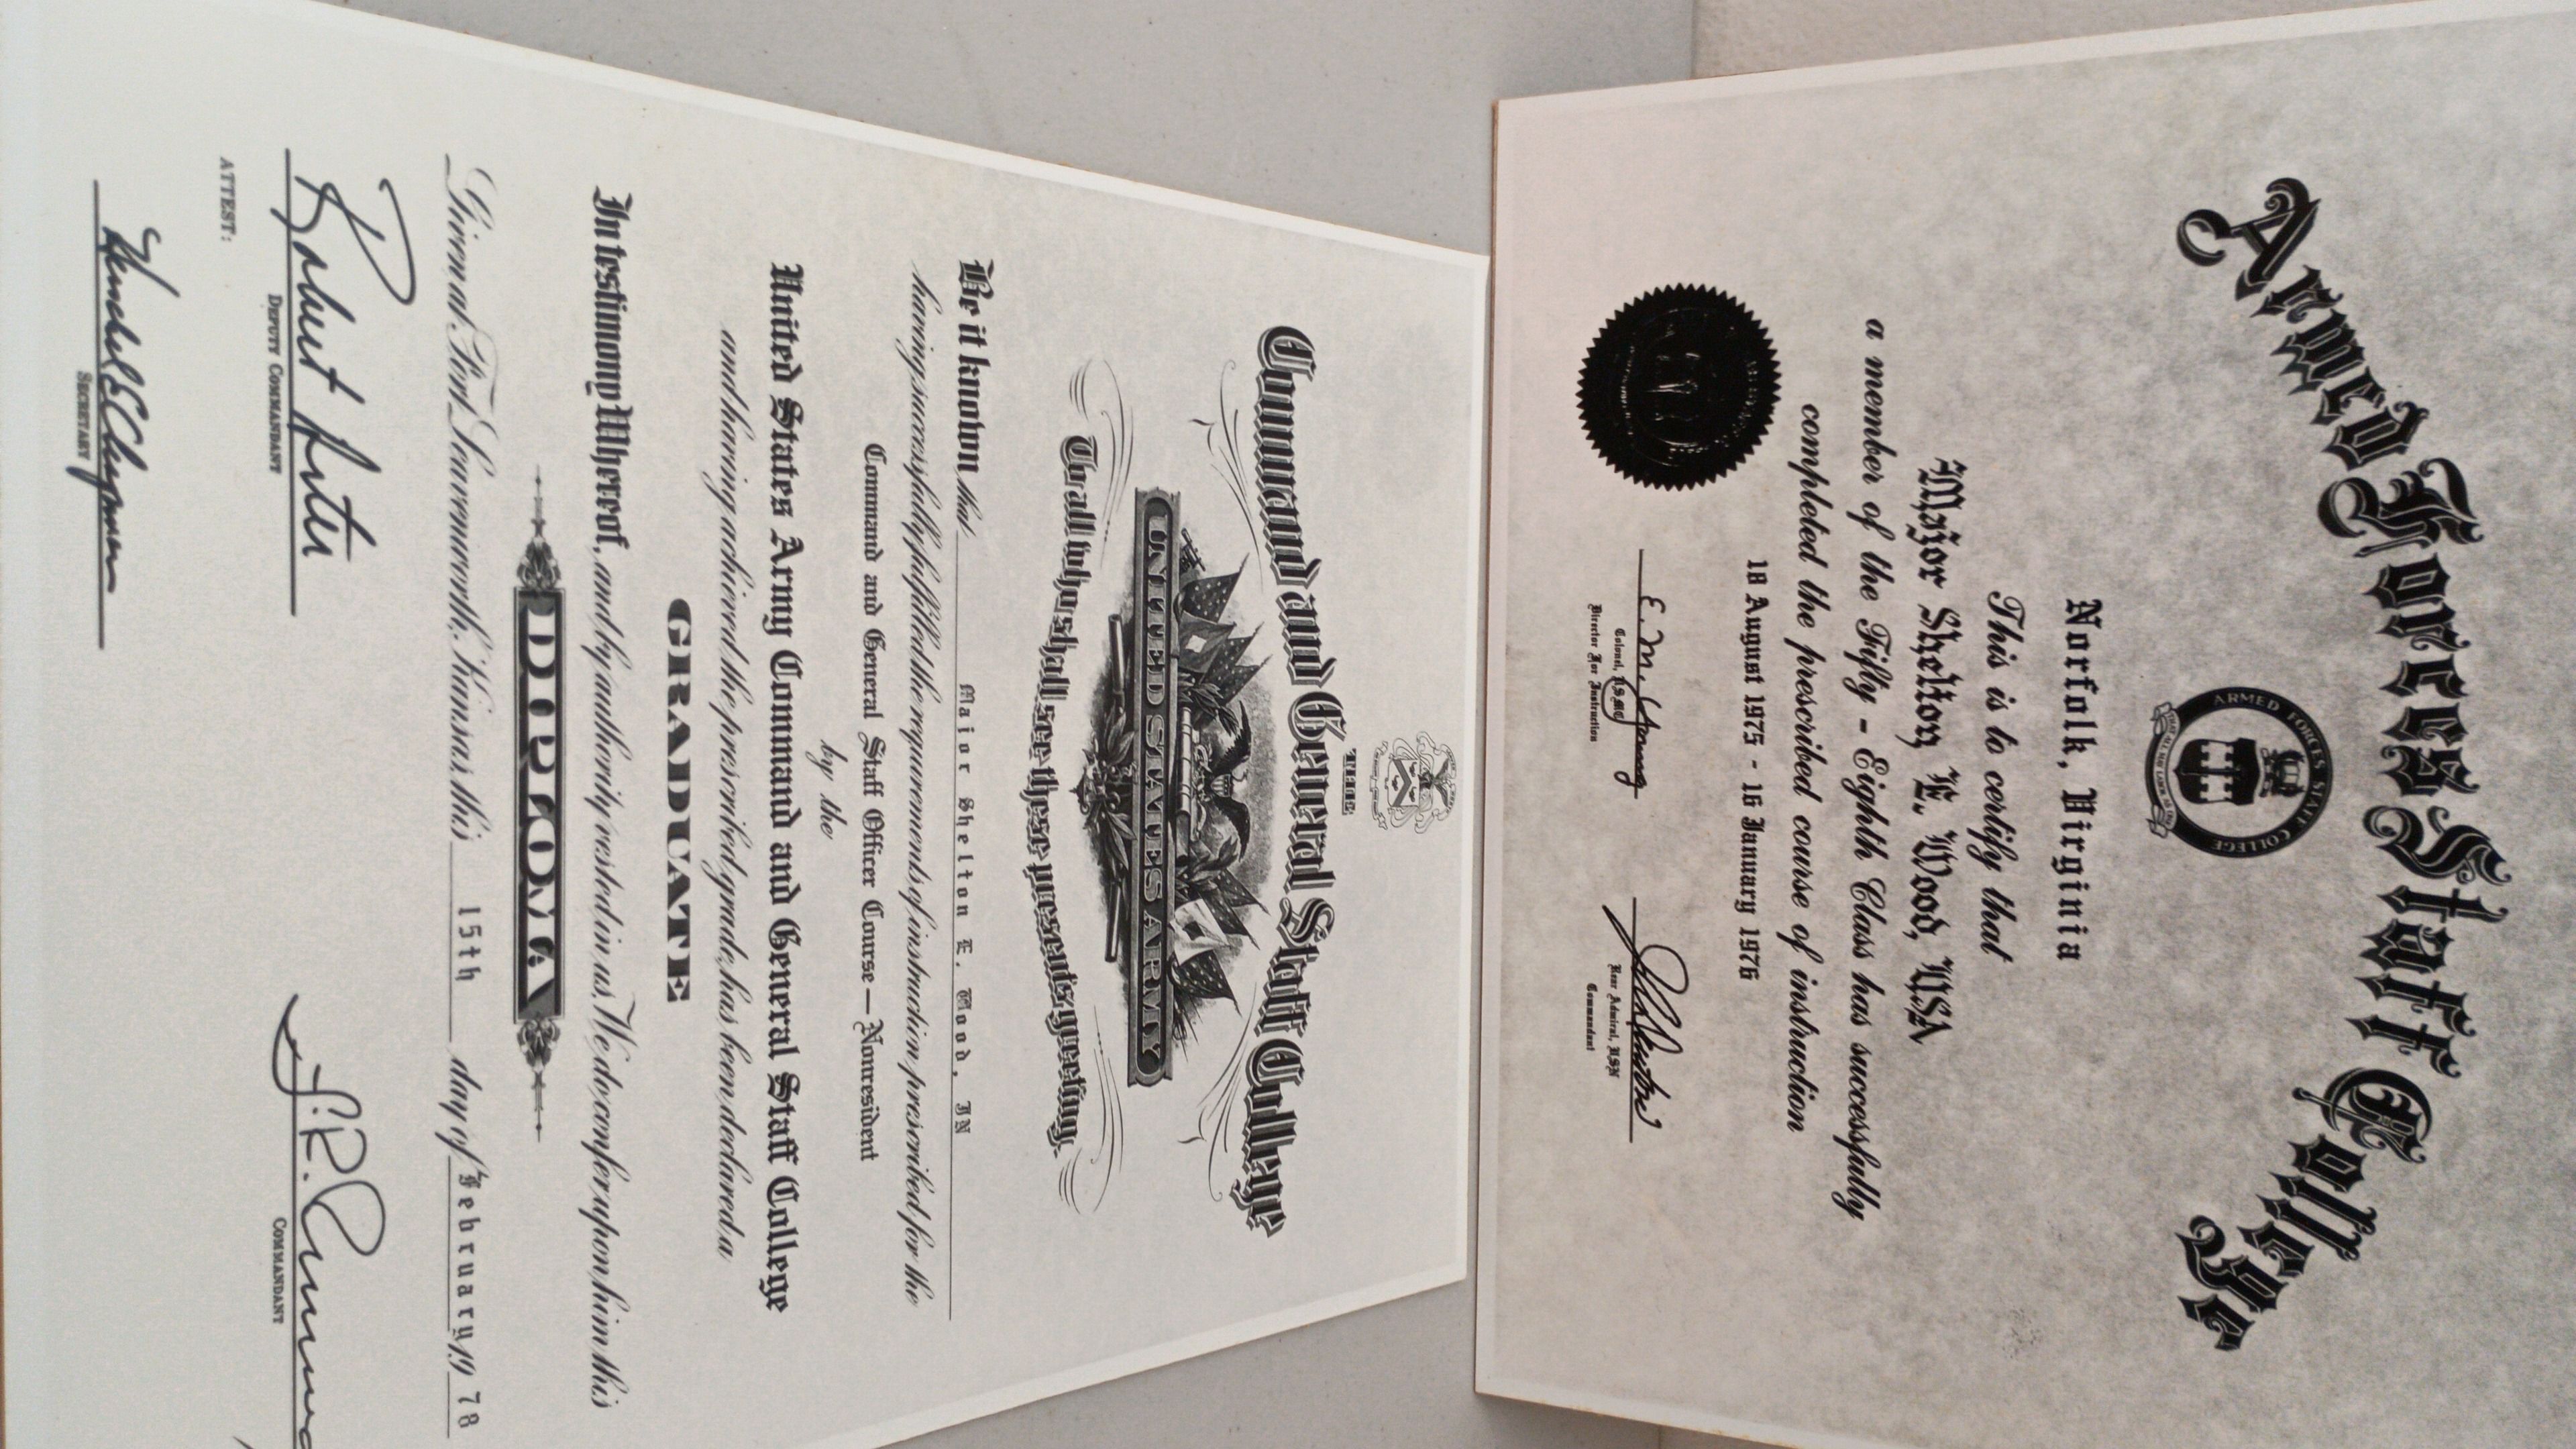 Armed Forces Staff College
ARMED FORCES STAFF COLLEGE
Norfolk, Virginia
This is to certify that
Major Shelton E. Wood, USA
a member of the Fifty - Eighth Class has successfully
completed the prescribed course of instruction
18 August 1975 - 16 January 1976
E. M. Young
Colonel, USMC
Rear Admiral, USN
Director For Instruction
Commandant
THE
Command and General Staff College
UNITED STATES ARMY
To all who shall see these presents, greeting
Be it known that Major Shelton E. Wood, IN
having successfully fulfilled the requirements of instruction prescribed for the
Command and General Staff Officer Course — Nonresident
by the
United States Army Command and General Staff College
and having achieved the prescribed grade, has been declared a
GRADUATE
In testimony Whereof, and by authority vested in us, We do confer upon him this
DIPLOMA
Given at Fort Leavenworth, Kansas, this 15th day of February, 19 78
Robert Arter
DEPUTY COMMANDANT
COMMANDANT
ATTEST:
SECRETARY